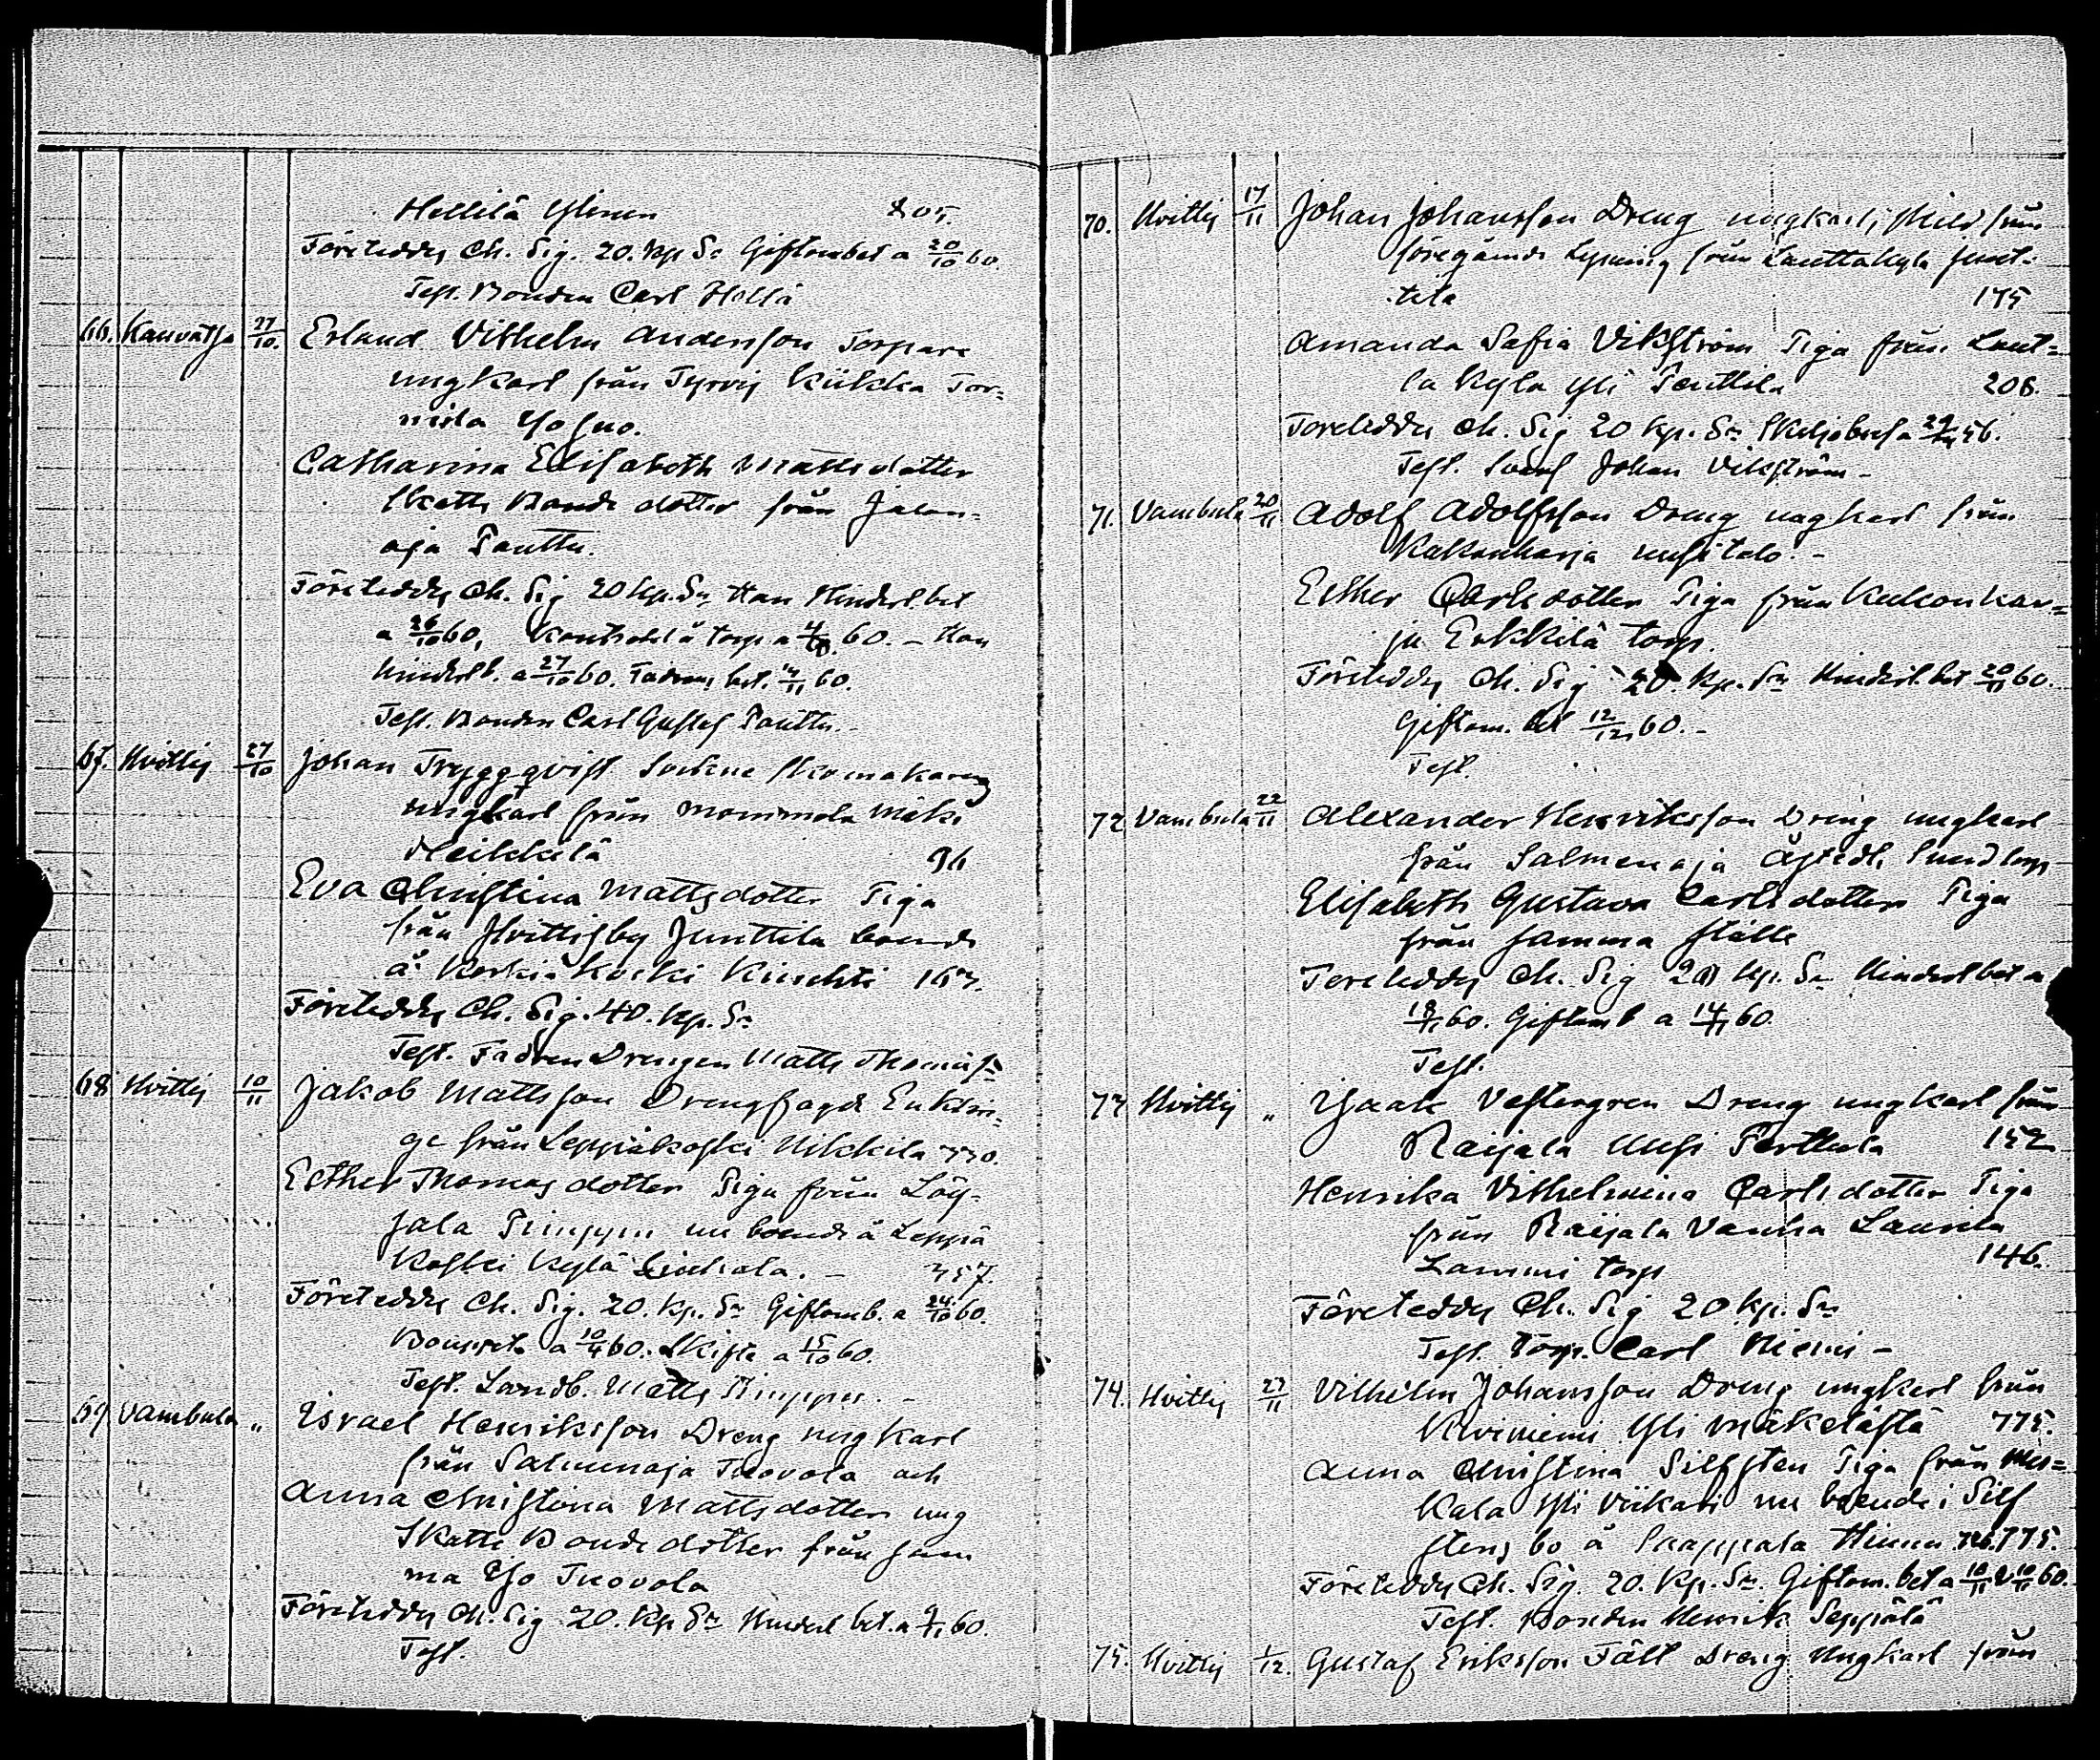 Hellilä Ylinen 805.
Företeddes Ch. Sig. 20. kp Sr Giftombet a 20/10 60.
Test. Bonden Carl Hellä
66. Kauvatsa 27/10. Erland Vilhelm Andersson Torpare
ungkarl från Tyrvis Kiikka Tor=
nila Yso Juo.
Catharina Elisabeth Mattsdotter
Skatte Bonde dotter från Jalon=
oja Pauttu.
Företeddes Ch. Sig 20 kp. Sr, Han Hinderl. bet
a 26/10 60, Kontrakt å torp a 60. – Hon
Hinderl b. a 27/10 60. Fadrens bet. 60.
Test. Bonden Carl Gustaf Pauttu.
67. Hvittis 27/10 Johan Tryggqvist Sockne Skomakaren
ungkarl från Mommola Mäki
Heikkilä 96
Eva Christina Mattsdotter Piga
från Hvittisby Junttila boende
å Korkiakoski
Företeddes Ch. Sig. 40. kp. Sr
Test. Fadren Drengen Matts Thomass
68 Hvittis 10/11 Jakob Mattsson Drengfogde Enklin=
ge från Leppäkoski Nikkilä 330.
Esther Thomasdotter Piga från Löy=
jala Pimppu nu boende å Leppä
koski Kylä. – 357.
Företeddes Ch. Sig. 20. kp. Sr Giftomb. a 24/10 60.
60. Skifte a 15/10 60.
Test. Landb. Matts Pimppu. –
69 Vambula „ Israel Henriksson Dreng ungkarl
från Salmenoja Tuovola och
Anna Christina Mattsdotter ung
Skatte Bonde dotter från sam
ma Yso Tuovola
Företeddes Ch. Sig 20. kp Sr Hinderl bet. a 9/11 60.
Test.
70. Hvittis 17/11 Johan Johansson Dreng ungkarl, skild från
föregående Lysning från Lauttakylä Junt=
tila 175
Amanda Sofia Vikström Piga från Laut=
ta Kylä Yli Penttilä 208.
Företeddes Ch. Sig 20 kp. Sr Skiljobref a 56.
Test. Johan Vikström –
71. Vambula 20/11 Adolf Adolfsson Dreng ungkarl från
Kukonharja Uusitalo. –
Esther Carlsdotter Piga från Kukonhar=
ja Erkkilä torp.
Företeddes Ch. Sig 20. kp. Sr Hinderl. bet 20/11 60.
Giftom. bet 12/12 60. –
Test.
72 Vambula 22/11 Alexander Henriksson Dreng ungkarl
från Salmenoja
Elisabeth Gustava Carlsdotter Piga
från samma ställe
Företeddes Ch. Sig 20 kp. Sr Hinderl bet a
18/11 60. Giftomb a 14/11 60.
Test.
73 Hvittis „ Isaak Vestergren Dreng ungkarl från
Raijala Uusi Perttula 152
Henrika Vilhelmina Carlsdotter Piga
från Raijala Vanha Laurila
Lammi torp 146.
Företeddes Ch. Sig 20 kp. Sr
Test. Torp. Carl Niemi –
74. Hvittis 23/11 Vilhelm Johansson Dreng ungkarl från
Kiviniemi Yli Mäkelästä 775.
Anna Christina Silfsten Piga från Mus=
kala Yli Viikari nu boende i Silf
stens bo å Skappala Hinnu 775.
Företeddes Ch. Sig. 20. kp. Sr. Giftom. bet a 10/11 60.
Test. Bonden Henrik Seppälä
75. Hvittis 1/12. Gustaf Eriksson Fält Dreng Ungkarl från